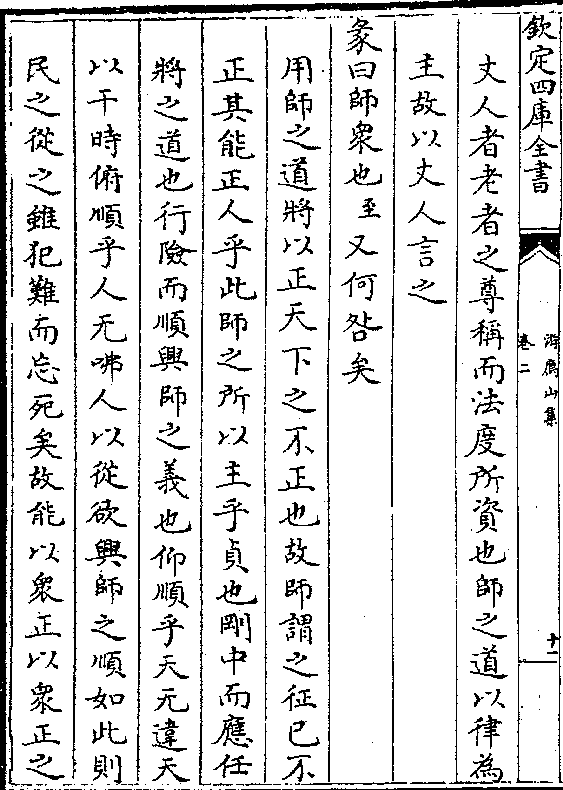 欽定四庫全書
游廌山集
卷二
十一
丈人者老者之尊稱而法度所資也師之道以律為
主故以丈人言之
彖曰師衆也至又何咎矣
用師之道將以正天下之不正也故師謂之征已不
正其能正人乎此師之所以主乎貞也剛中而應任
將之道也行險而順興師之義也仰順乎天无違天
以干時俯順乎人无咈人以從欲興師之順如此則
民之從之雖犯難而忘死矣故能以衆正以衆正之